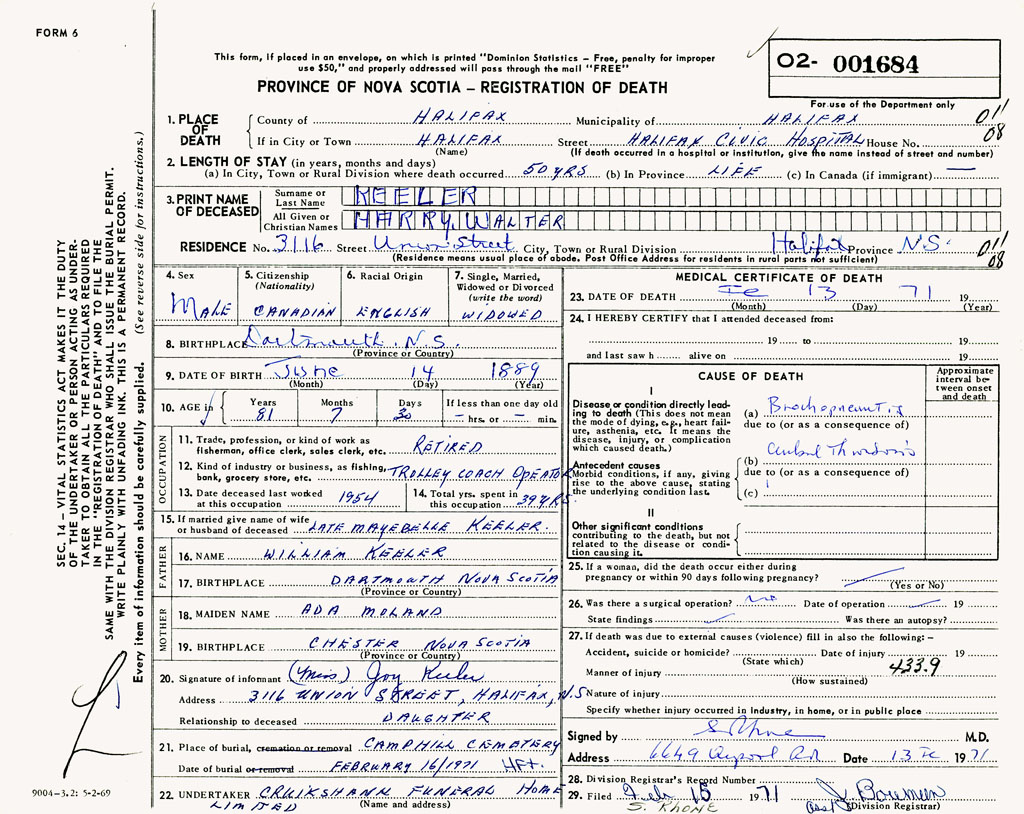 FORM 6
This form, if placed in an envelope, on which is printed "Dominion Statistics – Free, penalty for improper
use $50," and properly addressed will pass through the mail "FREE"
02- 001684
PROVINCE OF NOVA SCOTIA – REGISTRATION OF DEATH
For use of the Department only
1. PLACE OF DEATH County of HALIFAX Municipality of HALIFAX 011
If in City or Town HALIFAX Street HALIFAX CIVIC HOSPITAL House No. 08
(Name) (If death occurred in a hospital or institution, give the name instead of street and number)
2. LENGTH OF STAY (in years, months and days)
(a) In City, Town or Rural Division where death occurred 50 YRS (b) In Province LIFE (c) In Canada (if immigrant) —
3. PRINT NAME OF DECEASED Surname or Last Name KEELER
All Given or Christian Names HARRY, WALTER
RESIDENCE No. 3116 Street Union Street City, Town or Rural Division Halifax Province N.S. 011
(Residence means usual place of abode. Post Office Address for residents in rural parts not sufficient) 08
4. Sex 5. Citizenship (Nationality) 6. Racial Origin 7. Single, Married, Widowed or Divorced (write the word)
MALE CANADIAN ENGLISH WIDOWED
8. BIRTHPLACE Dartmouth. N.S.
(Province or Country)
9. DATE OF BIRTH June 14 1889
(Month) (Day) (Year)
10. AGE in Years Months Days If less than one day old
81 7 30 – hrs. or – min.
OCCUPATION
11. Trade, profession, or kind of work as
fisherman, office clerk, sales clerk, etc. RETIRED
12. Kind of industry or business, as fishing,
bank, grocery store, etc. TROLLEY COACH OPEATOR
13. Date deceased last worked at this occupation 1954 14. Total yrs. spent in this occupation 39 YRS.
15. If married give name of wife
or husband of deceased LATE MAYEBELLE KEELER.
FATHER
16. NAME WILLIAM KEELER
17. BIRTHPLACE DARTMOUTH NOVA SCOTIA
(Province or Country)
MOTHER
18. MAIDEN NAME ADA MOLAND
19. BIRTHPLACE CHESTER NOVA SCOTIA
(Province or Country)
20. Signature of informant (Miss) Joy Keeler
Address 3116 UNION STREET, HALIFAX, N.S
Relationship to deceased DAUGHTER
21. Place of burial, cremation or removal CAMPHILL CEMETERY
Date of burial or removal FEBRUARY 16/1971 HFX.
22. UNDERTAKER CRUIKSHANK FUNERAL HOME
LIMITED (Name and address)
MEDICAL CERTIFICATE OF DEATH
23. DATE OF DEATH Fe 13 71 19
(Month) (Day) (Year)
24. I HEREBY CERTIFY that I attended deceased from:
19 to 19
and last saw h alive on 19
CAUSE OF DEATH
Approximate interval between onset and death
I
Disease or condition directly leading to death (This does not mean the mode of dying, e.g., heart failure, asthenia, etc. It means the disease, injury, or complication which caused death.)
(a) Brochopneumonia
due to (or as a consequence of)
Antecedent causes
Morbid conditions, if any, giving rise to the above cause, stating the underlying condition last.
(b) Cerebral Thrombosis
due to (or as a consequence of)
(c)
II
Other significant conditions
contributing to the death, but not related to the disease or condition causing it.
25. If a woman, did the death occur either during
pregnancy or within 90 days following pregnancy?
(Yes or No)
26. Was there a surgical operation? no Date of operation 19
State findings Was there an autopsy?
27. If death was due to external causes (violence) fill in also the following: –
Accident, suicide or homicide? Date of injury 19
(State which)
Manner of injury 433.9
(How sustained)
Nature of injury
Specify whether injury occurred in industry, in home, or in public place
Signed by S Rhone M.D.
Address 6649 Date 13 Fe 1971
28. Division Registrar's Record Number
29. Filed Feb 15 1971 J. Bowmen
S. RHONE asst (Division Registrar)
SEC. 14 – VITAL STATISTICS ACT MAKES IT THE DUTY
OF THE UNDERTAKER OR PERSON ACTING AS UNDER-
TAKER TO OBTAIN ALL THE PARTICULARS REQUIRED
IN THE "REGISTRATION OF DEATH" AND TO FILE THE
SAME WITH THE DIVISION REGISTRAR WHO SHALL ISSUE THE BURIAL PERMIT.
WRITE PLAINLY WITH UNFADING INK. THIS IS A PERMANENT RECORD.
Every item of information should be carefully supplied. (See reverse side for instructions.)
9004-3.2: 5-2-69